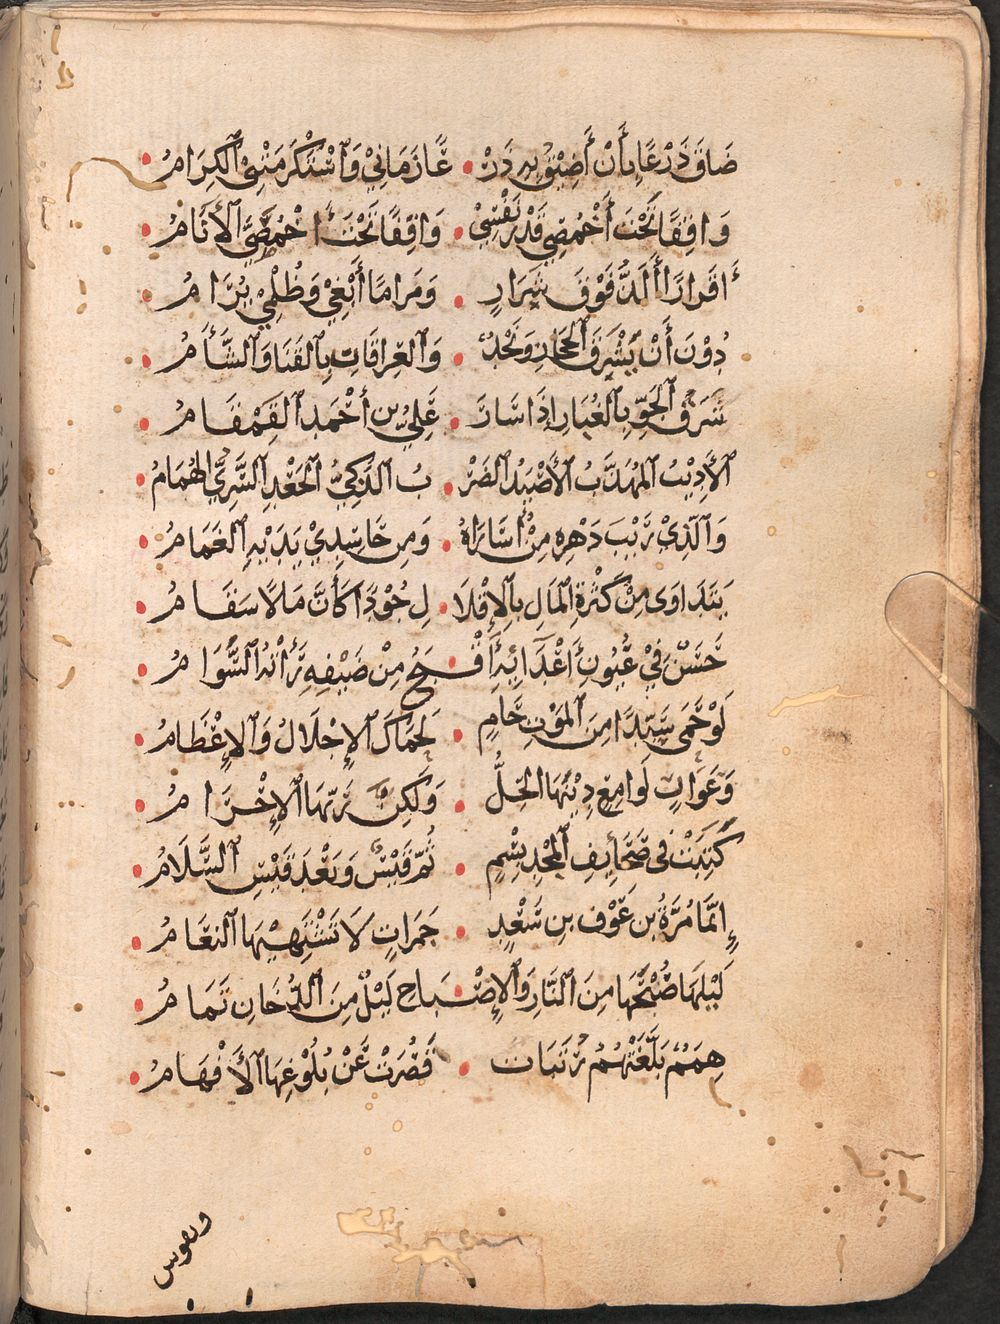 ضَاقَ ذَرْعًا بِأَنْ أَضِيْقَ بِهِ ذَرْ • عًا زَمَانِيْ وَٱسْتَكْرَمَتْنِى ٱلْكِرَامُ •
وَاقِفًا تَحْتَ أَخْمَصِي قَدْرِ نَفْسِيْ • وَاقِفًا تَحْتَ أَخْمَصَيَّ ٱلْأَنَامُ •
أَقَرَارًا أَلَذُّ فَوْقَ شَرَارٍ • وَمَرَامًا أَبْغِيْ وَظُلْمِيْ يُرَامُ •
دُوْنَ أَنْ يَشْرَقَ ٱلْحِجَازُ وَنَجْدٌ • وَٱلْعِرَاقَانِ بِٱلْقَنَا وَٱلشَّأَمُ •
شَرَقَ ٱلْجَوِّ بِٱلْغُبَارِ إِذَا سَارَ • عَلِيُّ بن أَحْمَدَ ٱلْقَمْقَامُ •
ٱلْأَدِيْبُ ٱلْمُهَذَّبُ ٱلْأَصْيَدُ ٱلضَّرْ • بُ ٱلذَّكِيُّ ٱلْجَعْدُ ٱلسَّرِيُّ الْهُمَامُ •
وَٱلَّذِيْ رَيْبُ دَهْرِهِ مِنْ أُسَارَاهُ • وَمِن حَاسِدِيْ يَدَيْهِ ٱلْغَمَامُ •
يَتَدَاوَى مِنْ كَثْرَةِ ٱلْمَالِ بِٱلْإِقْلَا • لِ جُوْدًا كَأَنَّ مَالًا سَقَامُ •
حَسَنٌ فِيْ عُيُونِ أَعْدَائِهِ أَقْـ • ـبَحُ مِنْ ضَيْفِهِ رَأَتْهُ ٱلسَّوَامُ •
لَوْ حَمَى سَيِّدًا مِنَ ٱلْمَوْتِ حَامٍ • لَحَمَاكَ ٱلْإِجْلَالُ وَٱلْإِعْظَامُ •
وَعَوَارٍ لَوَامِعٌ دِيْنُهَا الْحِلُّ • وَلَكِنَّ زِيَّهَا ٱلْإِحْرَامُ •
كُتِبَتْ فى صَحَايِفِ ٱلْمَجْدِ بِسْمٍ • ثُمَّ قَيْسٌ وَبَعْدَ قَيْسِ ٱلسَّلَامُ •
إِنَّمَا مُرَّةُ بن عَوْفِ بنِ سَعْدٍ • جَمَرَاتٌ لَا تَشْتَهِيْهَا ٱلنَّعَامُ •
لَيْلُهَا صُبْحُهَا مِنَ ٱلنَّارِ وَٱلْإِصْـ • ـبَاحُ لَيْلٌ مِنَ ٱلدُّخَانِ تَمَامُ •
هِمَمٌ بَلَّغَتْهُمْ رُتَبَاتٍ • قَصُرَتْ عَنْ بُلُوْغِهَا ٱلْأَفْهَامُ •
ونفوس